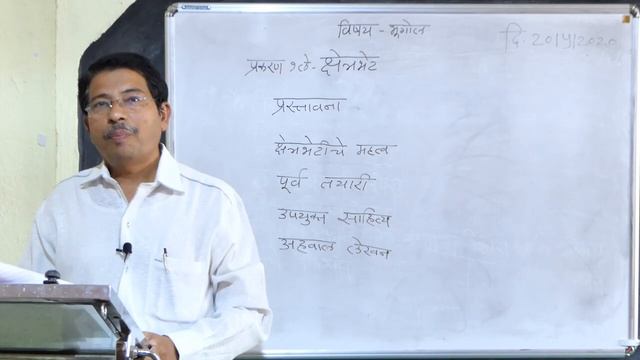 विषय - भूगोल
दि. 20/5/2020
प्रकरण १ले - क्षेत्रभेट
प्रस्तावना
क्षेत्रभेटीचे महत्व
पूर्व तयारी
उपयुक्त साहित्य
अहवाल लेखन